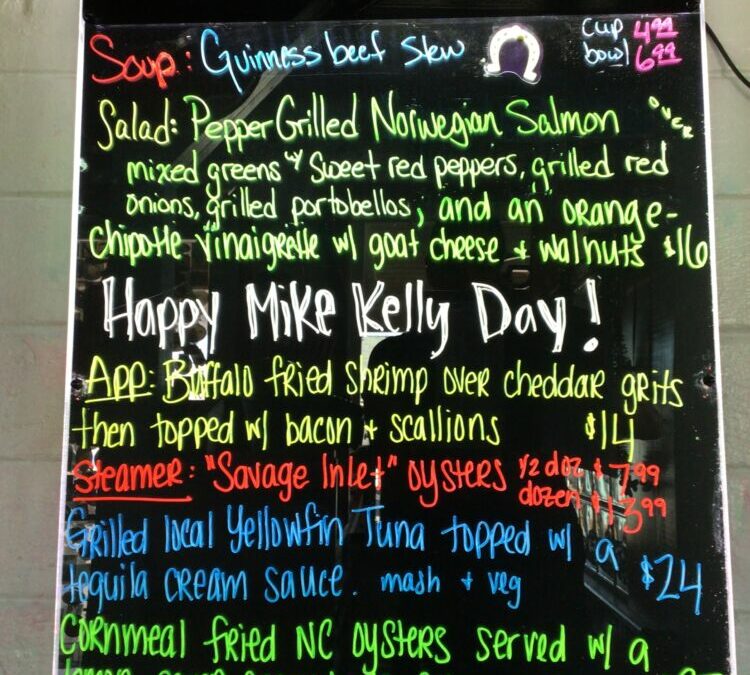 Soup: Guinness beef stew
cup 4.99
bowl 6.99
Salad: Pepper Grilled Norwegian Salmon over
mixed greens w/ sweet red peppers, grilled red
onions, grilled portobellos, and an orange-
chipotle vinaigrette w/ goat cheese + walnuts $16
Happy Mike Kelly Day!
App: Buffalo fried shrimp over cheddar grits
then topped w/ bacon + scallions $14
Steamer: "Savage Inlet" oysters 1/2 doz $7.99
dozen $13.99
Grilled local Yellowfin Tuna topped w/ a
tequila cream sauce. mash + veg $24
Cornmeal fried NC oysters served w/ a